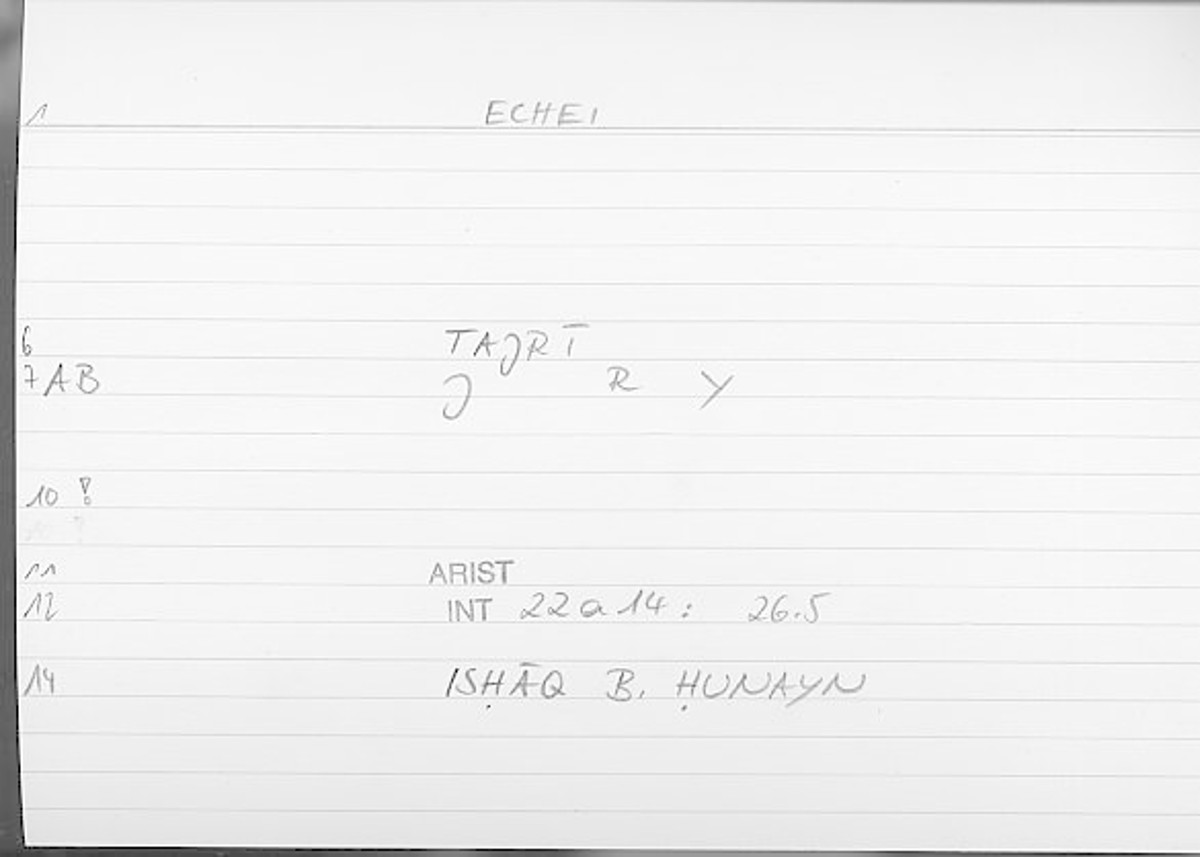 1 ECHEI
6 TAJRĪ
7AB J R Y
10 !
11 ARIST
12 INT 22a14: 26.5
14 ISḤĀQ B. ḤUNAYN